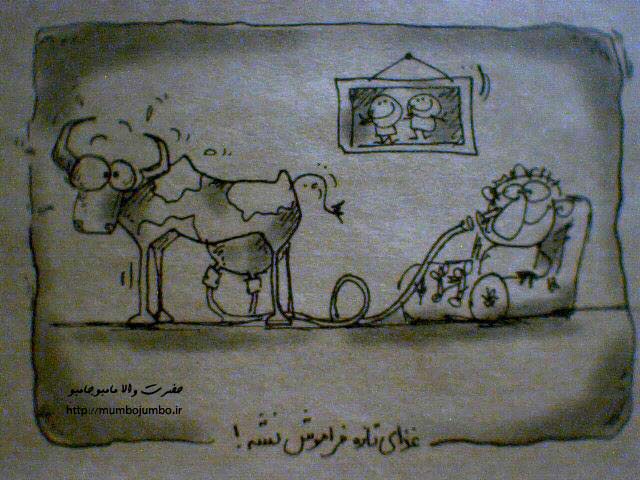 حضرت والا مامبو جامبو
http://mumbojumbo.ir
غذای تازه فراموش نشه !